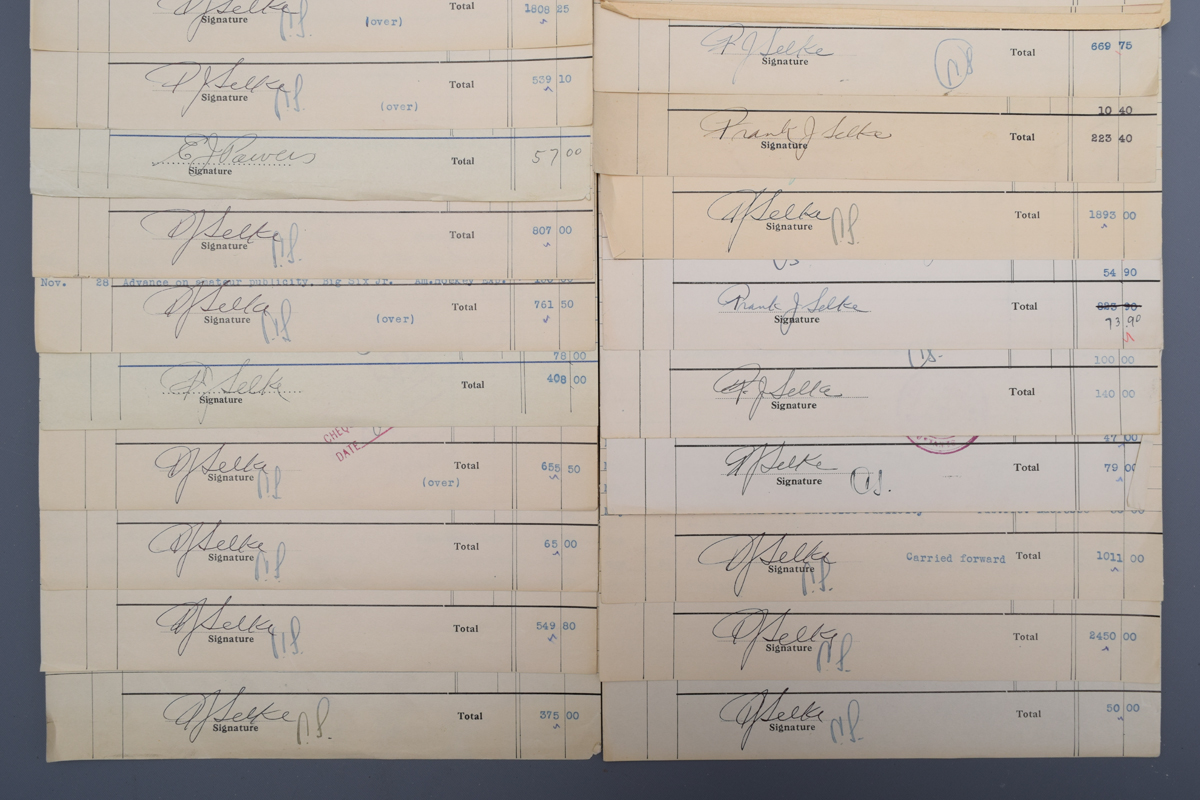 FJ Selke Total 1808 25
Signature (over)
FJ Selke Total 539 10
Signature (over)
E J Powers Total 57 00
Signature
FJ Selke Total 807 00
Signature
Nov. 28 Advance on amateur publicity. Big Six Jr.
FJ Selke Total 761 50
Signature (over)
78 00
FJ Selke Total 408 00
Signature
DATE
FJ Selke Total 655 50
Signature (over)
FJ Selke Total 65 00
Signature
FJ Selke Total 549 80
Signature
FJ Selke Total 375 00
Signature
F J Selke Total 669 75
Signature
10 40
Frank J Selke Total 223 40
Signature
FJ Selke Total 1893 00
Signature
54 90
Frank J Selke Total 223 90
Signature 73.90
100 00
F. J Selke Total 140 00
Signature
47 00
FJ Selke Total 79 00
Signature
FJ Selke Carried forward Total 1011 00
Signature
FJ Selke Total 2450 00
Signature
FJ Selke Total 50 00
Signature